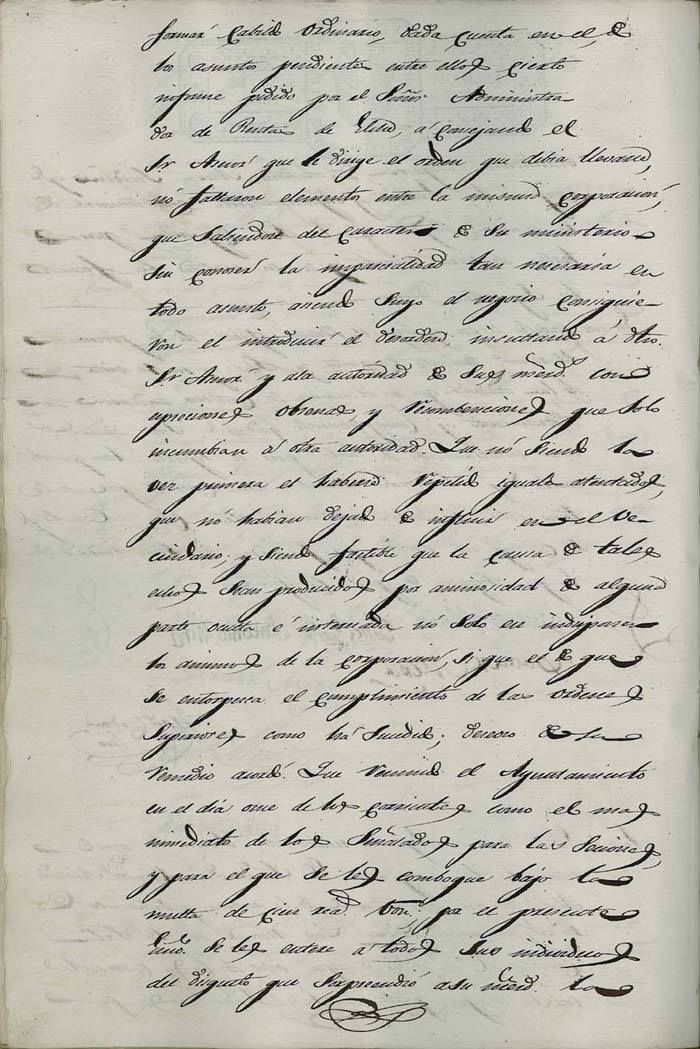 formar Cabildo Ordinario, dada cuenta en el, de
los asuntos pendientes entre ellos cierto
informe pedido por el Señor Administra
dor de Rentas de Elche, aconsejando el
Sr. Asesor que le dirige el orden que debia llevarse,
nó faltaron elementos entre la misma corporacion,
que Saliendose del Caracter de Su ministerio
Sin conocer la imparcialidad tan necesaria en
todo asunto, haciendo Suyo el negocio consiguie-
ron el introducir el desorden, insultando á dho.
Sr. Asesor y á la autoridad de Su merd. con
espreciones obsenas, y que Solo
incumbian á otra autoridad. Que nó Siendo la
ver primera el haberse repetido iguales atentados,
que nó habian dejado de influir en el Ve-
cindario; y Siendo factible que la causa de tales
echos Sean producidos por animosidad de alguna
parte oculta é interesada nó Solo en indisponer
los animos de la corporacion, si que el de que
Se entorpesca el cumplimiento de las ordenes
Superiores como há Sucedido; deseoso de Su
remedio acordó: Que reunido el Ayuntamiento
en el dia once de los corrientes como el mas
inmediato de los Señalados para las Seciones,
y para el que Se les comboque bajo la
multa de cien rea.s Von; por el presente
Escno. Se les entere a todos Sus individuos
del disgusto que sorprendió a su merd. la